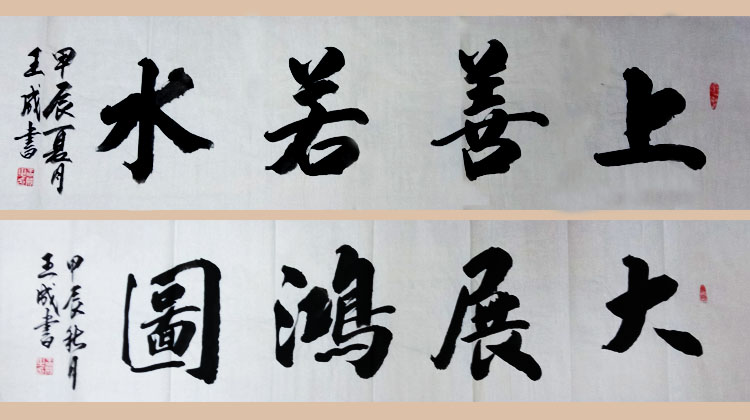 上善若水
甲辰夏月
王成書
大展鴻圖
甲辰秋月
王成書